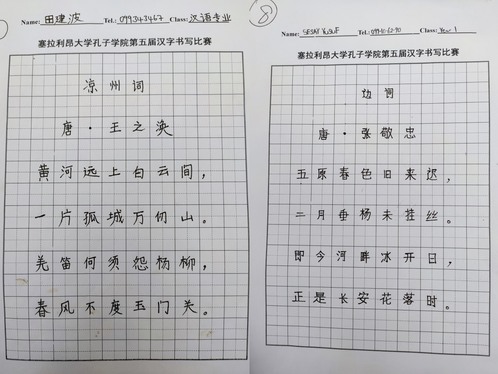 Name: 田建波 Tel: 099343467 Class: 汉语专业
塞拉利昂大学孔子学院第五届汉字书写比赛
凉州词
唐·王之涣
黄河远上白云间，
一片孤城万仞山。
羌笛何须怨杨柳，
春风不度玉门关。
8
Name: SESAY YUSUF Tel: Class: Year 1
塞拉利昂大学孔子学院第五届汉字书写比赛
边词
唐·张敬忠
五原春色旧来迟，
二月垂杨未挂丝。
即今河畔冰开日，
正是长安花落时。